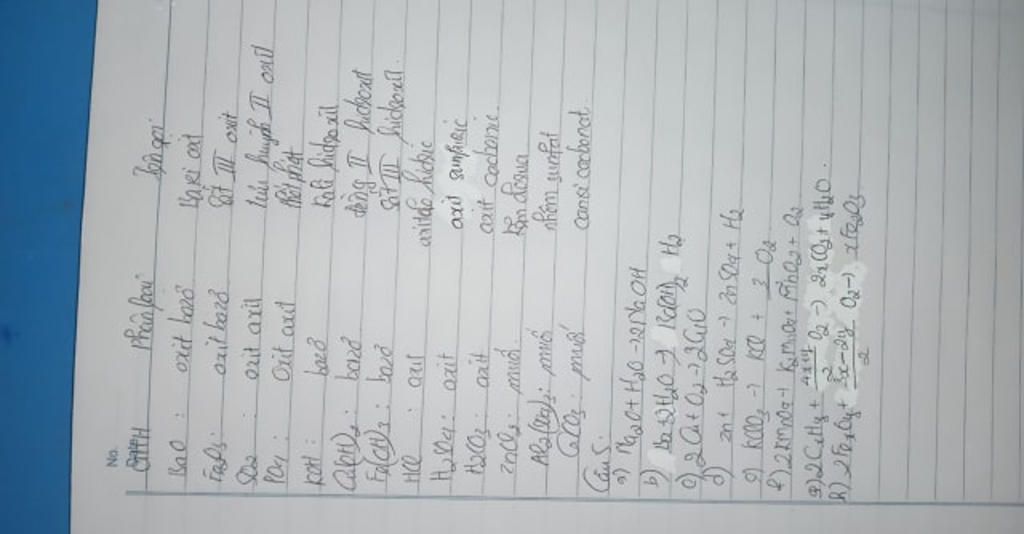 No.
CTHH Phân loại Tên gọi
BaO : oxit bazơ bari oxit
Fe2O3 : oxit bazơ Sắt III oxit
SO2 : oxit axit lưu huỳnh II oxit
PO4 : Oxit axit
KOH : bazơ Kali hidroxit
Cu(OH)2 : bazơ đồng II hidroxit
Fe(OH)3 : bazơ Sắt III hidroxit.
HCl : axit axit clo hidric
H2SO4 : axit axit sunfuric
H2CO3 : axit axit cacbonic
ZnCl2 : muối. kẽm clorua
Al2(SO4)3 : muối nhôm sunfat
CaCO3 : muối canxi cacbonat.
Câu 5.
a) Na2O + H2O → 2NaOH
b) Ba + 2H2O → Ba(OH)2 H2
c) 2Cu + O2 → 2CuO
d) Zn + H2SO4 → ZnSO4 + H2
e) KClO3 → KCl + 3/2 O2
f) 2KMnO4 → K2MnO4 + MnO2 + O2
g) 2CxHy + 4x+y/2 O2 → 2xCO2 + yH2O.
h) 2FexOy + 3x-2y/2 O2 → xFe2O3